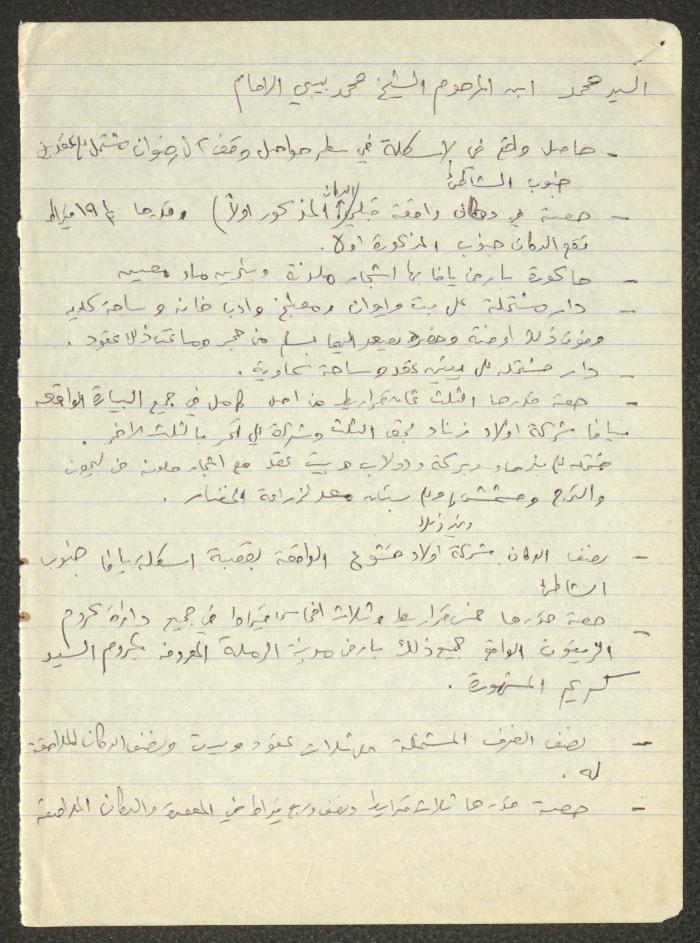 السيد محمد ابن المرحوم الشيخ محمد بيبي الامام
- حاصل واقع في لاسكلة في سطر حواصل وقف آل رضوان مشتمل على عقدين
جنوب الشاطئ
- حصة في دكان واقعة قبلي (الدكان المذكور اولاً) وقدرها ١٩ قيراط
تقع الدكان جنوب المذكورة اولا.
- حاكورة بارض يافا بها اشجار ملونة وبئر به ماء معينه
- دار مشتملة على بيت وايوان ومطبخ وادب خانه وساحة علويه
وفوق ذلك اوضة يصعد اليها بسلم من حجر وما تحت ذلك عقود.
- دار مشتمله على بيتين عقد وساحة سماوية.
- حصة قدرها الثلث ثمان قراريط من اصل كامل في جميع البيارة الواقعه
بيافا شركة اولاد بحق الثلث وشركة بالثلث الاخر.
بئر ماء وبركة ودولاب وبيت عقد مع اشجار ملونه من ليمون
والترج ومشمش بستان معد لزراعة الخضار.
وغير ذلك
- نصف الدكان شركة اولاد الواقعة بقصبة اسكلة يافا جنوب
الشاطئ
- حصة قدرها خمس قراريط وثلاث اخماس قيراط في جميع دائرة كروم
الزيتون الواقع جميع ذلك بارض مدينة الرملة المعروفه بكروم السيد
كريم المشهورة.
- نصف الغرف المشتملة على ثلاث عقود وبيت ونصف الدكان الملاصقة
له.
- حصة قدرها ثلاث قراريط ونصف وربع قيراط في المعصرة والدكان الملاصقة